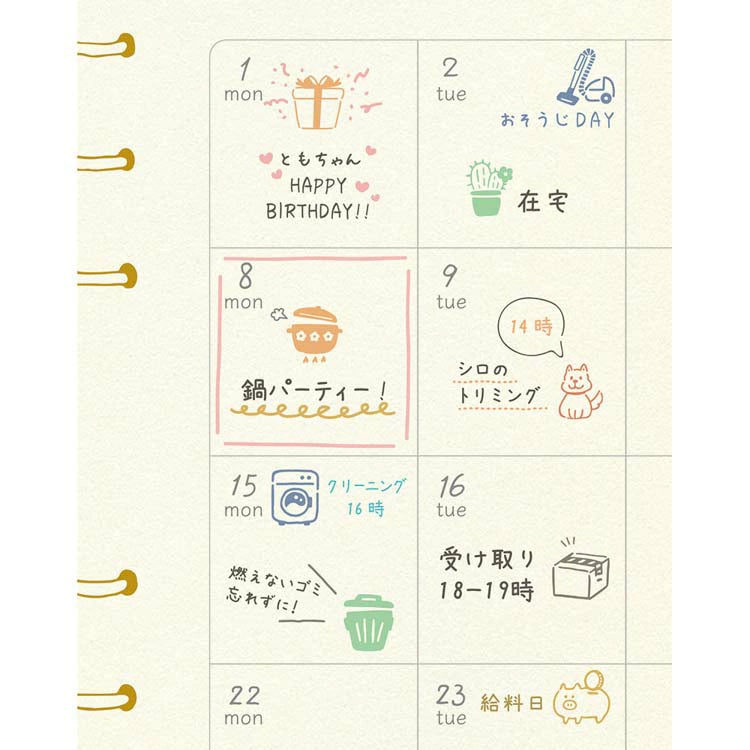 1
mon
ともちゃん
HAPPY
BIRTHDAY!!
2
tue
おそうじDAY
在宅
8
mon
鍋パーティー!
9
tue
14時
シロの
トリミング
15
mon
クリーニング
16時
燃えないゴミ
忘れずに!
16
tue
受け取り
18-19時
22
mon
23
tue
給料日